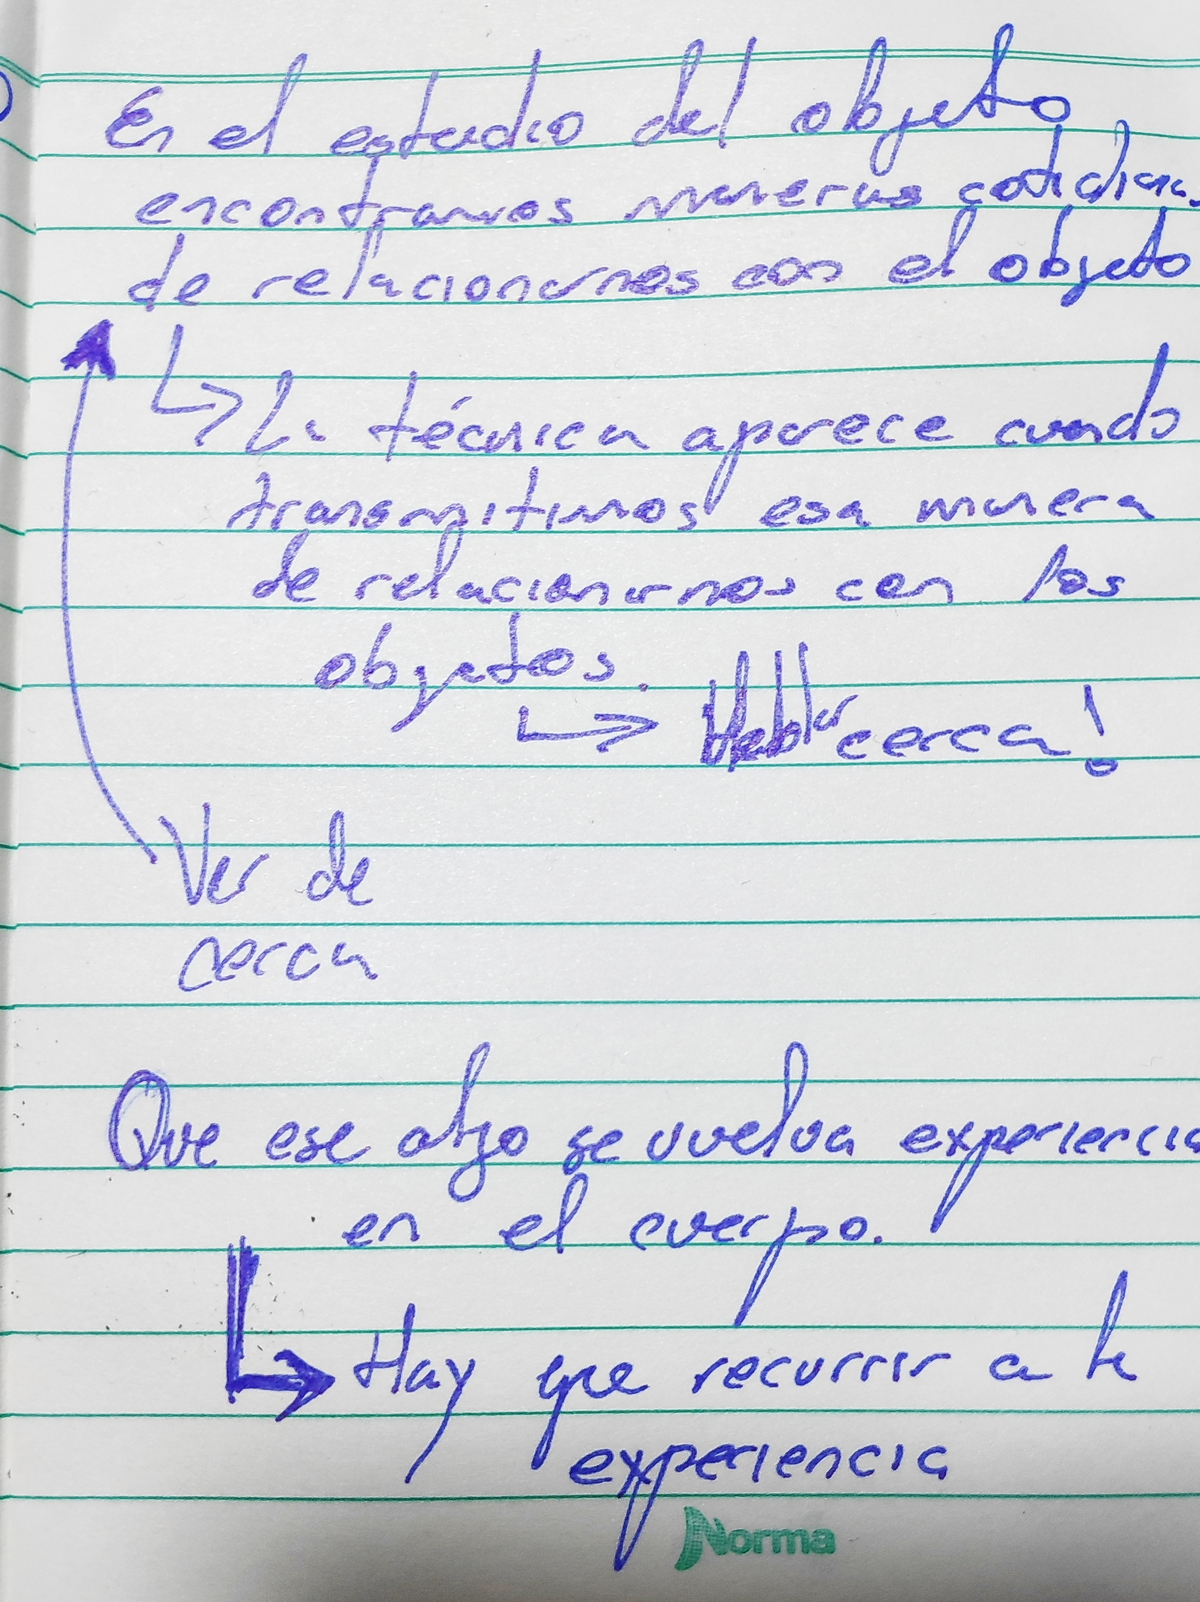 En el estudio del objeto
encontramos maneras
de relacionarnos con el objeto
↳ La técnica aparece cuando
transmitimos esa manera
de relacionarnos con los
objetos.
↳ Hablar cerca!
Ver de
cerca
Que ese algo se vuelva experiencia
en el cuerpo.
↳ Hay que recurrir a la
experiencia
Norma